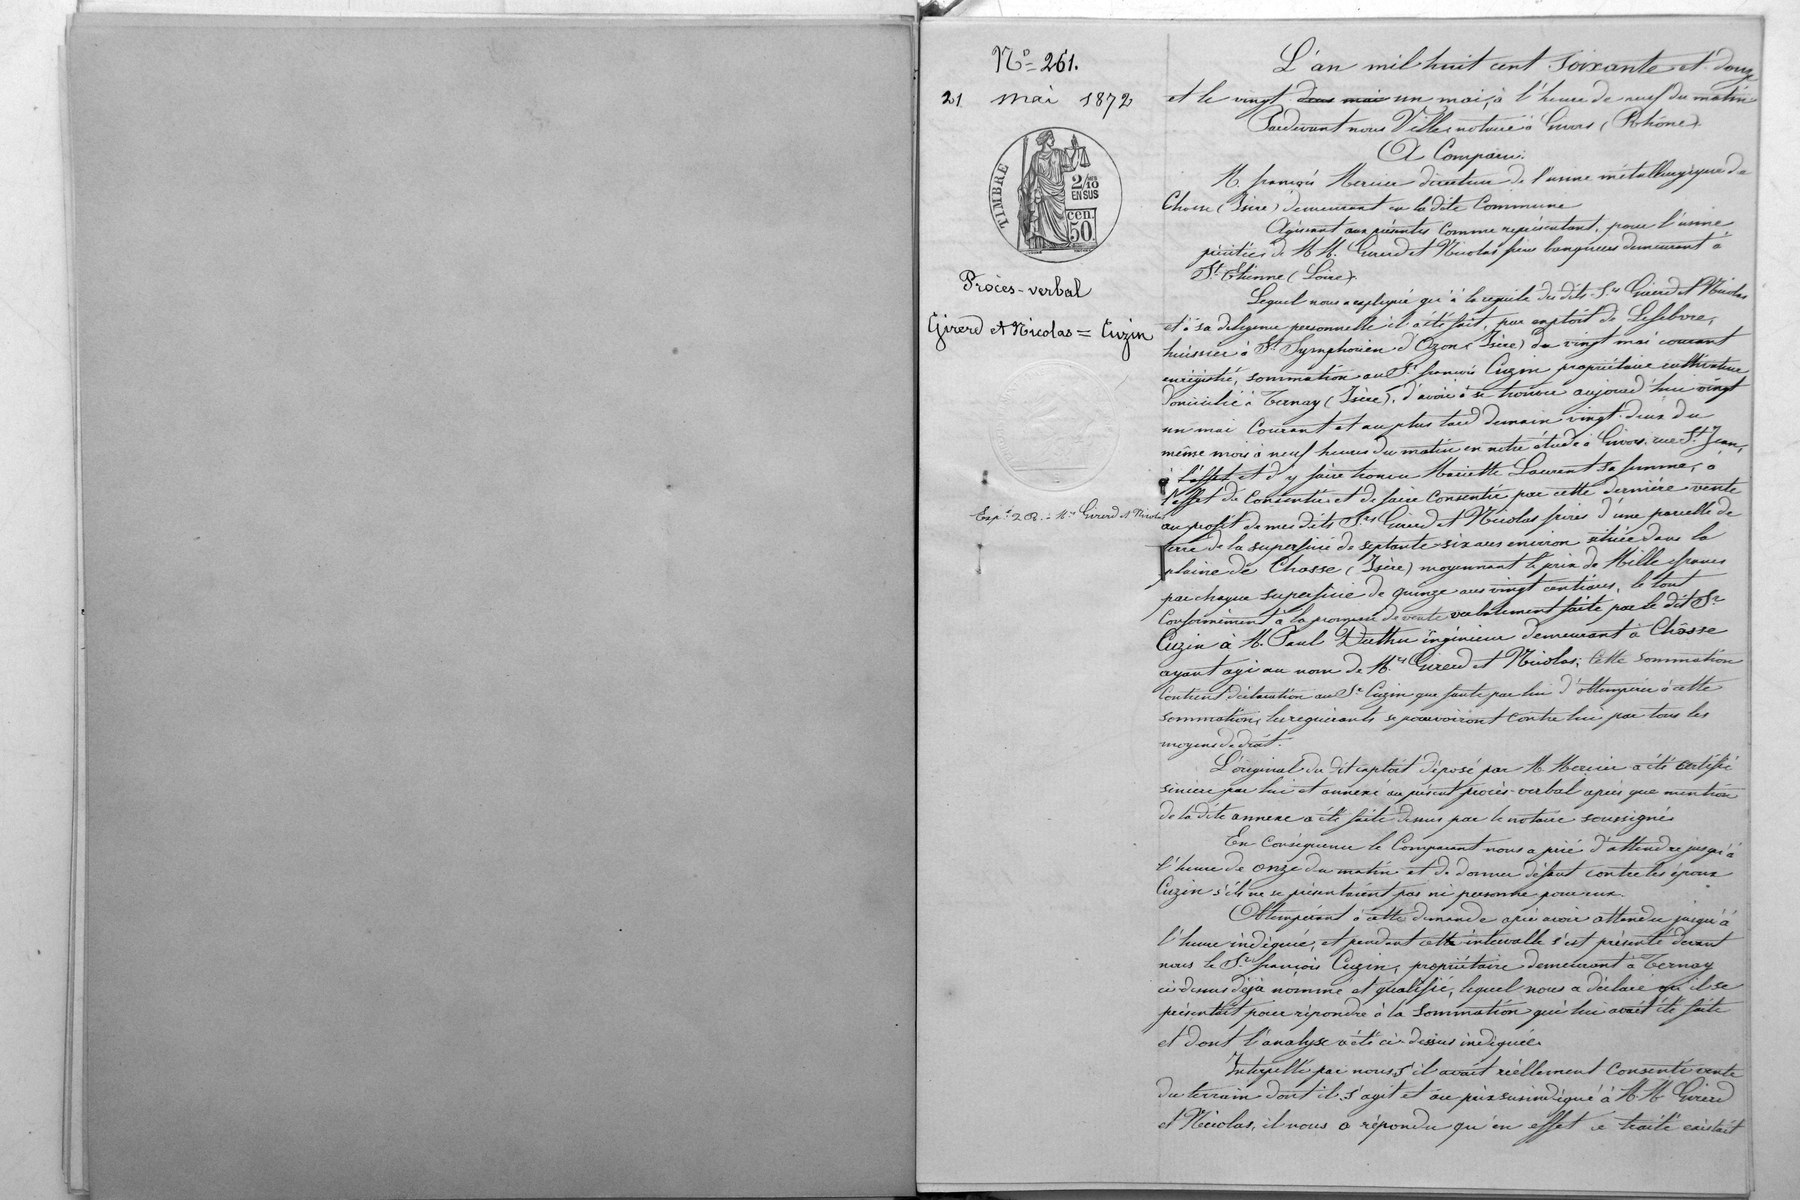 N° 261.
21 mai 1872
TIMBRE
2/10
EN SUS
cen.
50.
Procès-verbal
Girerd et Nicolas = Cuzin
Girerd et Nicolas
L'an mil huit cent soixante et douze
et le vingt deux mai un mai, à l'heure de neuf du matin
Pardevant nous Ville, notaire à Givors (Rhône).
A Comparu:
M. françois Mercier directeur de l'usine métallurgique de
Chasse (Isère) demeurant en la dite Commune
Agissant aux présentes comme représentant, pour l'usine
précitée de M.M. Girerd et Nicolas frères banquiers demeurant à
St. Etienne (Loire).
Lequel nous a expliqué qu'à la requête des dits Srs Girerd et Nicolas
et à sa diligence personnelle il a été fait, par exploit de Lefebvre,
huissier à St. Symphorien d'Ozon (Isère) du vingt mai courant
enregistré, sommation au Sr. françois Cuzin propriétaire cultivateur
domicilié à Ternay (Isère), d'avoir à se trouver aujourd'hui vingt
un mai Courant et au plus tard demain vingt-deux du
même mois à neuf heures du matin en notre étude à Givors, rue St. Jean,
à l'effet et d'y faire trouver Mariette Laurent sa femme, à
l'effet de Consentir et de faire Consentir par cette dernière vente
au profit de mes dits Srs Girerd et Nicolas frères d'une parcelle de
terre de la superficie de septante six ares environ située dans la
plaine de Chasse (Isère) moyennant le prix de Mille francs
par chaque superficie de quinze ares vingt centiares, le tout
Conformément à la promesse de vente verbalement faite par le dit Sr
Cuzin à M. Paul ingénieur demeurant à Chasse
ayant agi au nom de M.rs Girerd et Nicolas; Cette sommation
Contient déclaration au Sr Cuzin que faute par lui d'obtempérer à cette
sommation, les requérants se pourvoiront contre lui par tous les
moyens de droit.
L'original du dit exploit déposé par M. Mercier a été certifié
sincère par lui et annexé au présent procès-verbal après que mention
de la dite annexe a été faite dessus par le notaire soussigné.
En Conséquence le Comparant nous a prié d'attendre jusqu'à
l'heure de onze du matin et de donner défaut contre les époux
Cuzin s'ils ne se présentaient pas ni personne pour eux.
Obtempérant à cette demande après avoir attendu jusqu'à
l'heure indiquée, et pendant cette intervalle s'est présenté devant
nous le Sr. françois Cuzin, propriétaire demeurant à Ternay
ci-dessus déjà nommé et qualifié, lequel nous a déclaré qu'il se
présentait pour répondre à la sommation qui lui avait été faite
et dont l'analyse a été ci-dessus indiquée.
Interpellé par nous s'il avait réellement Consenti vente
du terrain dont il s'agit et au prix susindiqué à M.M. Girerd
et Nicolas, il nous a répondu qu'en effet ce traité existait